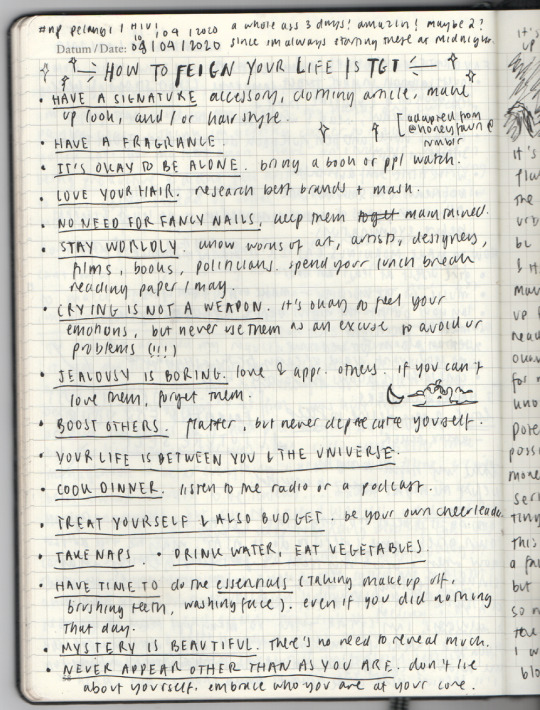 #np pelangi / HIVI
10/04/2020 a whole ass 3 days! amazin! maybe 2?
Datum / Date: 09/04/2020 since im always starting these at midnight.
HOW TO FEIGN YOUR LIFE IS TGT
• HAVE A SIGNATURE accessory, clothing article, make
up look, and / or hairstyle.
[adapted from
@honeyfawn @
tumblr
• HAVE A FRAGRANCE.
• IT'S OKAY TO BE ALONE. bring a book or ppl watch.
• LOVE YOUR HAIR. research best brands + mask.
• NO NEED FOR FANCY NAILS, keep them maintained.
• STAY WORLDLY. know works of art, artists, designers,
films, books, politicians. spend your lunch break
reading paper / mag.
• CRYING IS NOT A WEAPON. it's okay to feel your
emotions, but never use them as an excuse to avoid ur
problems (!!!)
• JEALOUSY IS BORING. love & appr. others. if you can't
love them, forget them.
• BOOST OTHERS. flatter, but never deprecate yourself.
• YOUR LIFE IS BETWEEN YOU & THE UNIVERSE.
• COOK DINNER. listen to the radio or a podcast.
• TREAT YOURSELF & ALSO BUDGET. be your own cheerleader.
• TAKE NAPS. • DRINK WATER, EAT VEGETABLES.
• HAVE TIME TO do the essentials (taking makeup off,
brushing teeth, washing face). even if you did nothing
that day.
• MYSTERY IS BEAUTIFUL. there's no need to reveal much.
• NEVER APPEAR OTHER THAN AS YOU ARE. don't lie
about yourself. embrace who you are at your core.